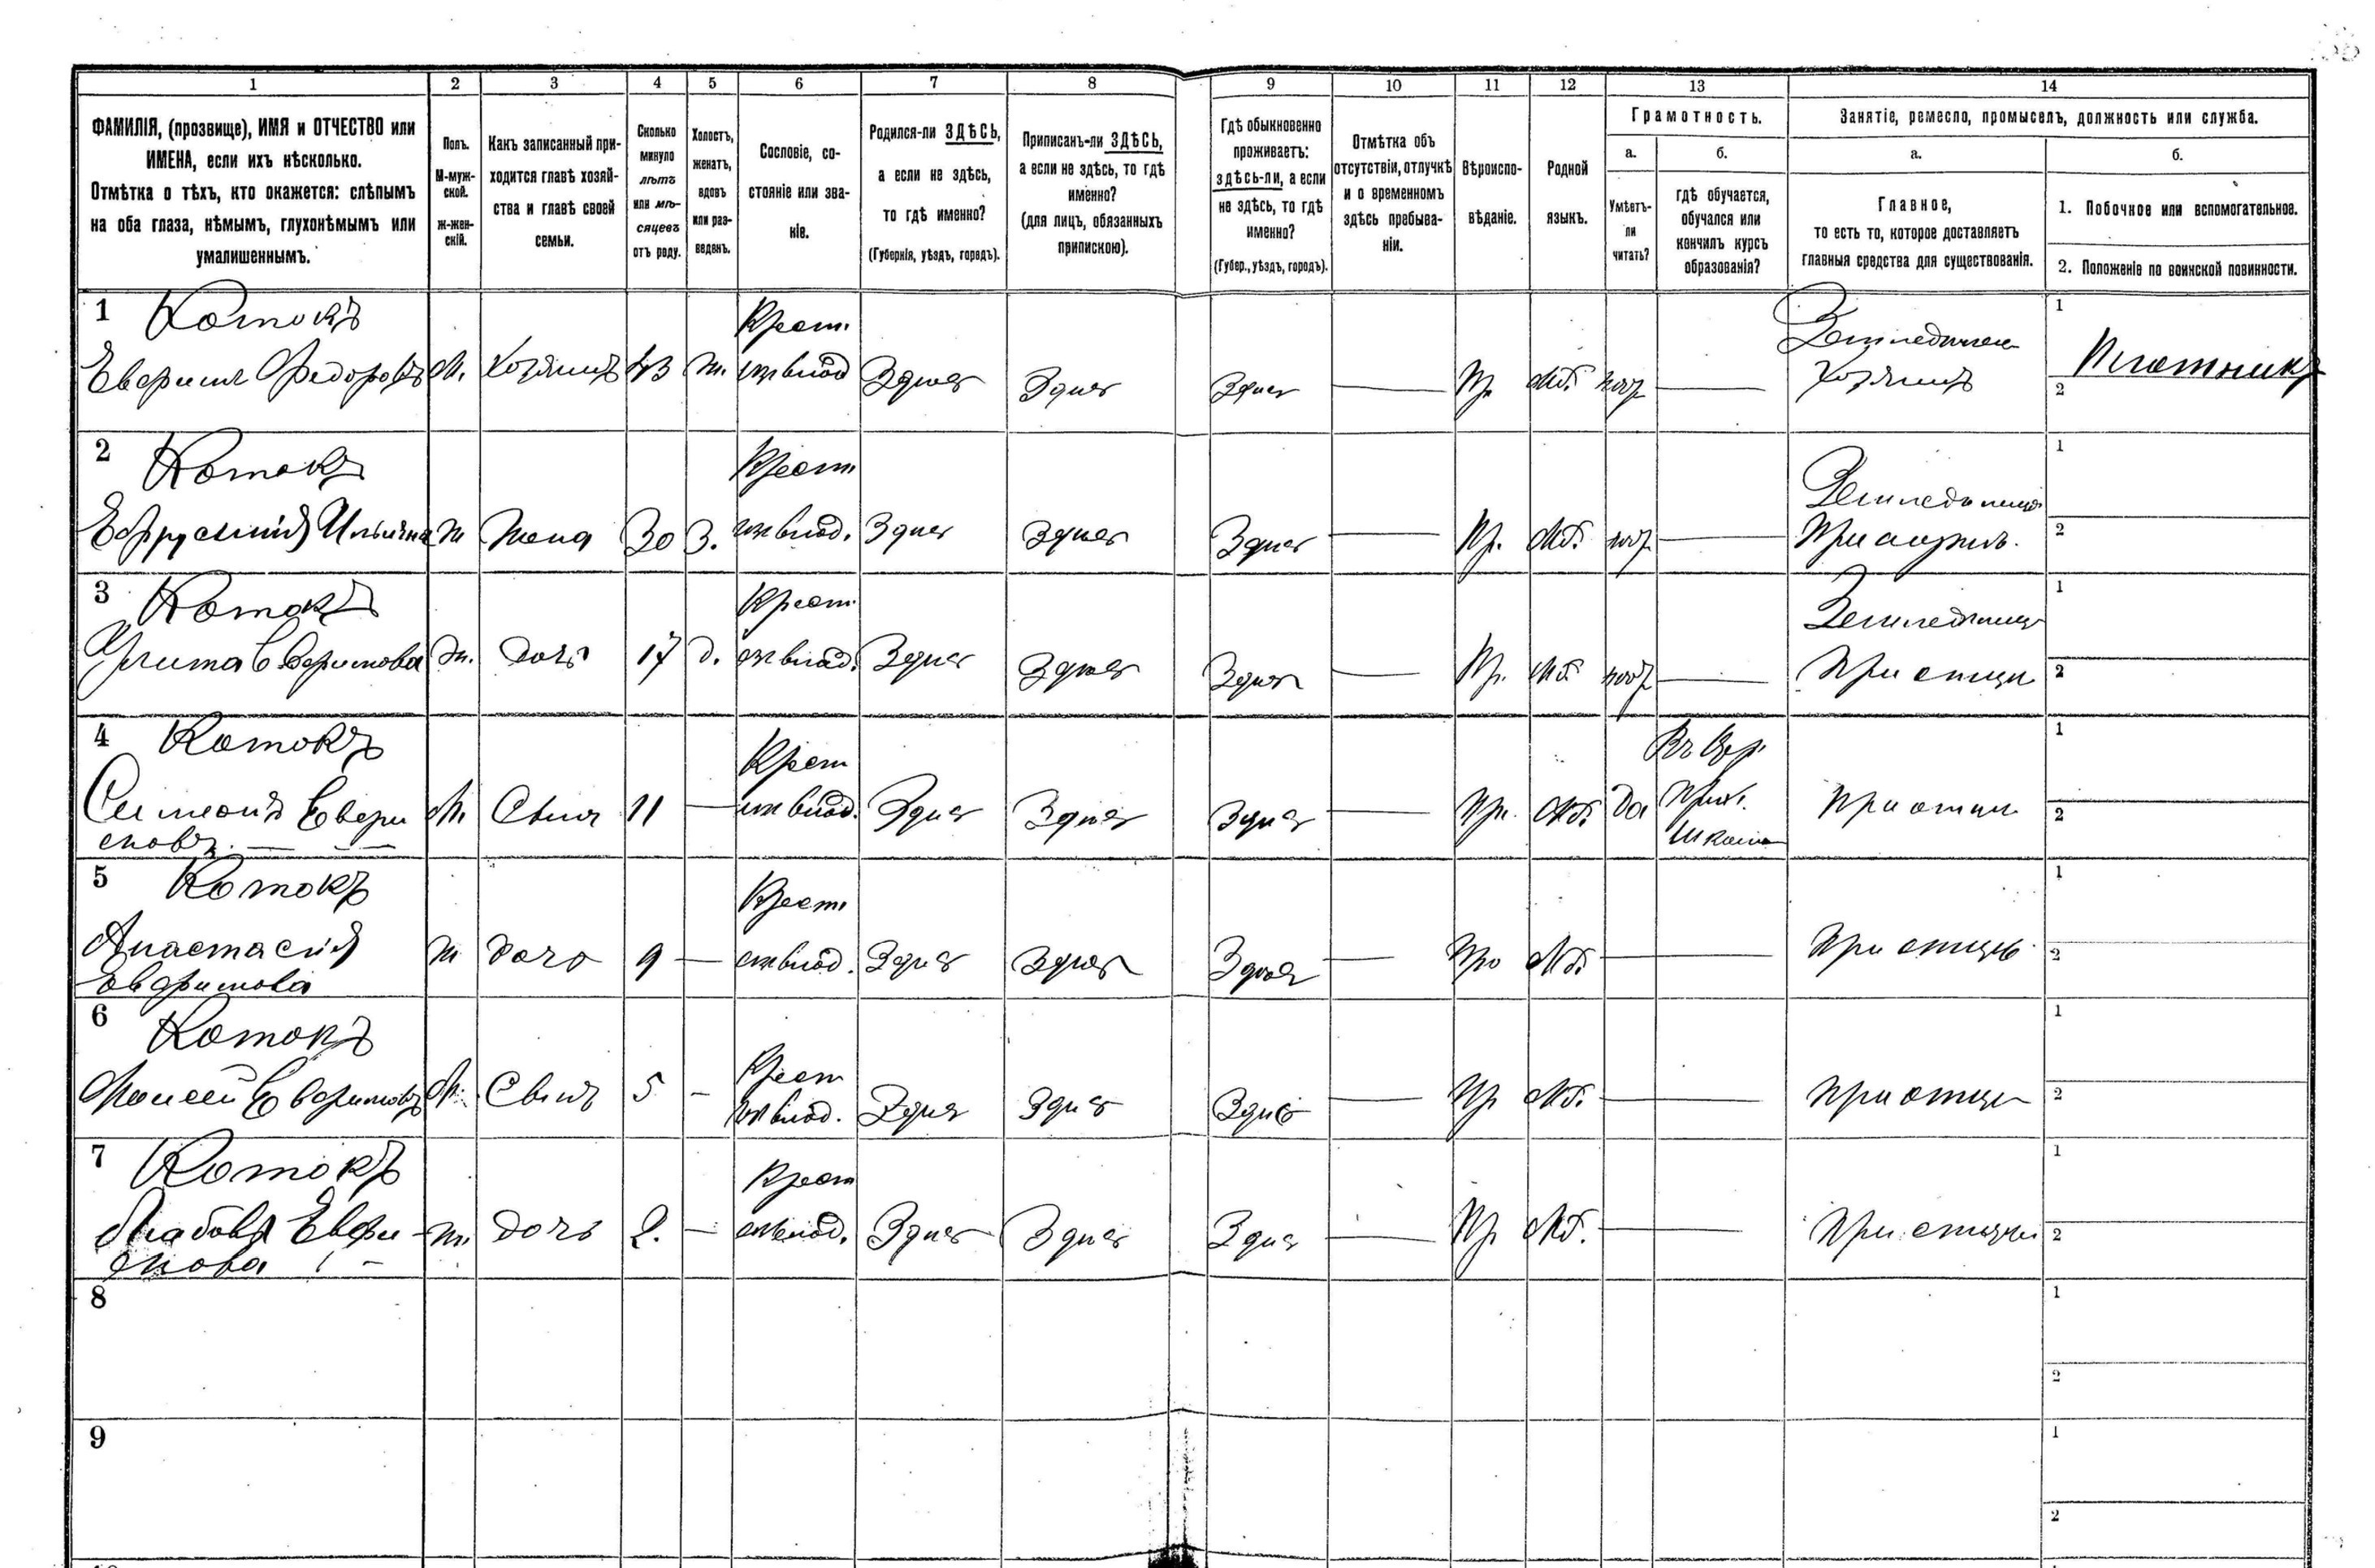 1 2 3 4 5 6 7 8 9 10 11 12 13 14
ФАМИЛІЯ, (прозвище), ИМЯ и ОТЧЕСТВО или
ИМЕНА, если ихъ нѣсколько.
Отмѣтка о тѣхъ, кто окажется: слѣпымъ
на оба глаза, нѣмымъ, глухонѣмымъ или
умалишеннымъ.
Полъ.
М-муж-
ской.
ж-жен-
скій.
Какъ записанный при-
ходится главѣ хозяй-
ства и главѣ своей
семьи.
Сколько
минуло
лѣтъ
или мѣ-
сяцевъ
отъ роду.
Холостъ,
женатъ,
вдовъ
или раз-
веденъ.
Сословіе, со-
стояніе или зва-
ніе.
Родился-ли ЗДѢСЬ,
а если не здѣсь,
то гдѣ именно?
(Губернія, уѣздъ, городъ).
Приписанъ-ли ЗДѢСЬ,
а если не здѣсь, то гдѣ
именно?
(для лицъ, обязанныхъ
припискою).
Гдѣ обыкновенно
проживаетъ:
здѣсь-ли, а если
не здѣсь, то гдѣ
именно?
(Губер., уѣздъ, городъ).
Отмѣтка объ
отсутствіи, отлучкѣ
и о временномъ
здѣсь пребыва-
ніи.
Вѣроиспо-
вѣданіе.
Родной
языкъ.
Грамотность.
а.
Умѣетъ-
ли
читать?
б.
гдѣ обучается,
обучался или
кончилъ курсъ
образованія?
Занятіе, ремесло, промыселъ, должность или служба.
а.
Главное,
то есть то, которое доставляетъ
главныя средства для существованія.
б.
1. Побочное или вспомогательное.
2. Положеніе по воинской повинности.
1 Котокъ Крест. 1
Федоровъ М. Хозяинъ 43 ж. Здѣсь Здѣсь Здѣсь Пр. Хозяинъ Плотникъ
2
2 Котокъ Крест. 1
Ильична ж Жена 30 З. Здѣсь Здѣсь Здѣсь Пр. 2
3 Котокъ Крест. 1
ж. Дочь 17 д. Здѣсь Здѣсь Здѣсь Пр. При отцѣ 2
4 Котокъ Крест Въ Цер. 1
Симеонъ Евфи М. Сынъ 11 — Здѣсь Здѣсь Здѣсь Пр. Да Прих. При отцѣ 2
мовъ. Школѣ
5 Котокъ Крест. 1
Анастасія ж Дочь 9 — Здѣсь Здѣсь Здѣсь Пр При отцѣ 2
Евфимова
6 Котокъ Крест 1
Евфимовъ М. Сынъ 5 — Здѣсь Здѣсь Здѣсь Пр При отцѣ 2
7 Котокъ Крест 1
Любовь Евфи- ж. Дочь 2. — Здѣсь Здѣсь Здѣсь Пр При отцѣ 2
мова
8 1
2
9 1
2